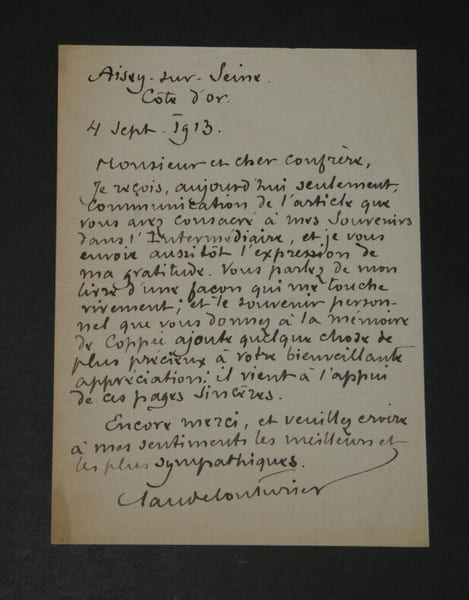 Aisey-sur-Seine
Côte d'or.
4 Sept. 1913.
Monsieur et cher Confrère,
Je reçois, aujourd'hui seulement,
communication de l'article que
vous avez consacré à mes Souvenirs
dans l'Intermédiaire, et je vous
envoie aussitôt l'expression de
ma gratitude. Vous parlez de mon
livre d'une façon qui me touche
vivement; et le souvenir person-
nel que vous donnez à la mémoire
de Coppée ajoute quelque chose de
plus précieux à votre bienveillante
appréciation; il vient à l'appui
de ces pages sincères.
Encore merci, et veuillez croire
à mes sentiments les meilleurs et
les plus sympathiques.
Claude Couturier